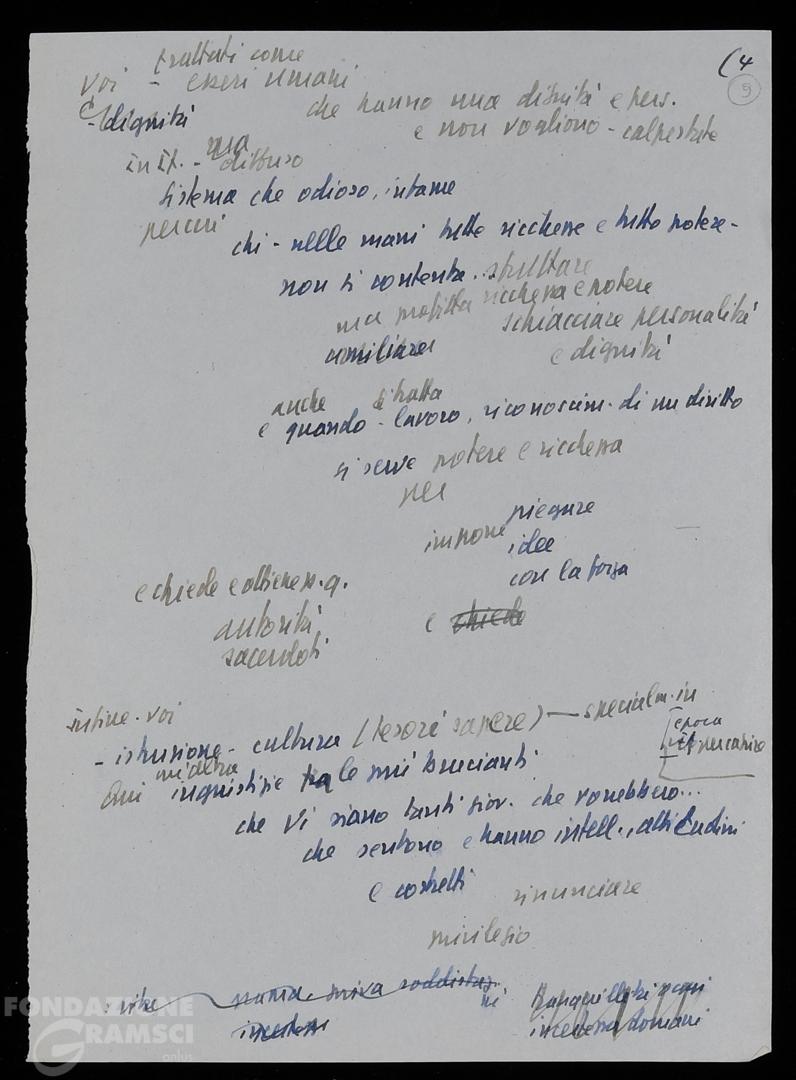 (4
5
trattati come
voi - esseri umani
e - dignità
che hanno una dignità e pers.
e non vogliono - calpestate
in It. - ma
diffuso
sistema che odioso, infame
percui
chi - nelle mani tutte ricchezze e tutto potere -
non si contenta.. sfruttare
ma profitta ricchezza e potere
umiliare
schiacciare personalità
e dignità
anche si tratta
e quando - lavoro, riconoscim. di un diritto
si serve potere e ricchezza
per
imporre
piegare
idee
con la forza
e chiede e ottiene
autorità
sacerdoti
e chiede
infine - voi
- istruzione - cultura (tesori sapere) — specialm. in
epoca
Qui
ingiustizie tra le più brucianti
che vi siano tanti giov. che vorrebbero...
che sentono e hanno intell., attitudini
e costretti
rinunciare
privilegio
: vita
senza soddisfaz.
incertezza
tranquillità oggi
incertezza domani
FONDAZIONE
GRAMSCI
onlus